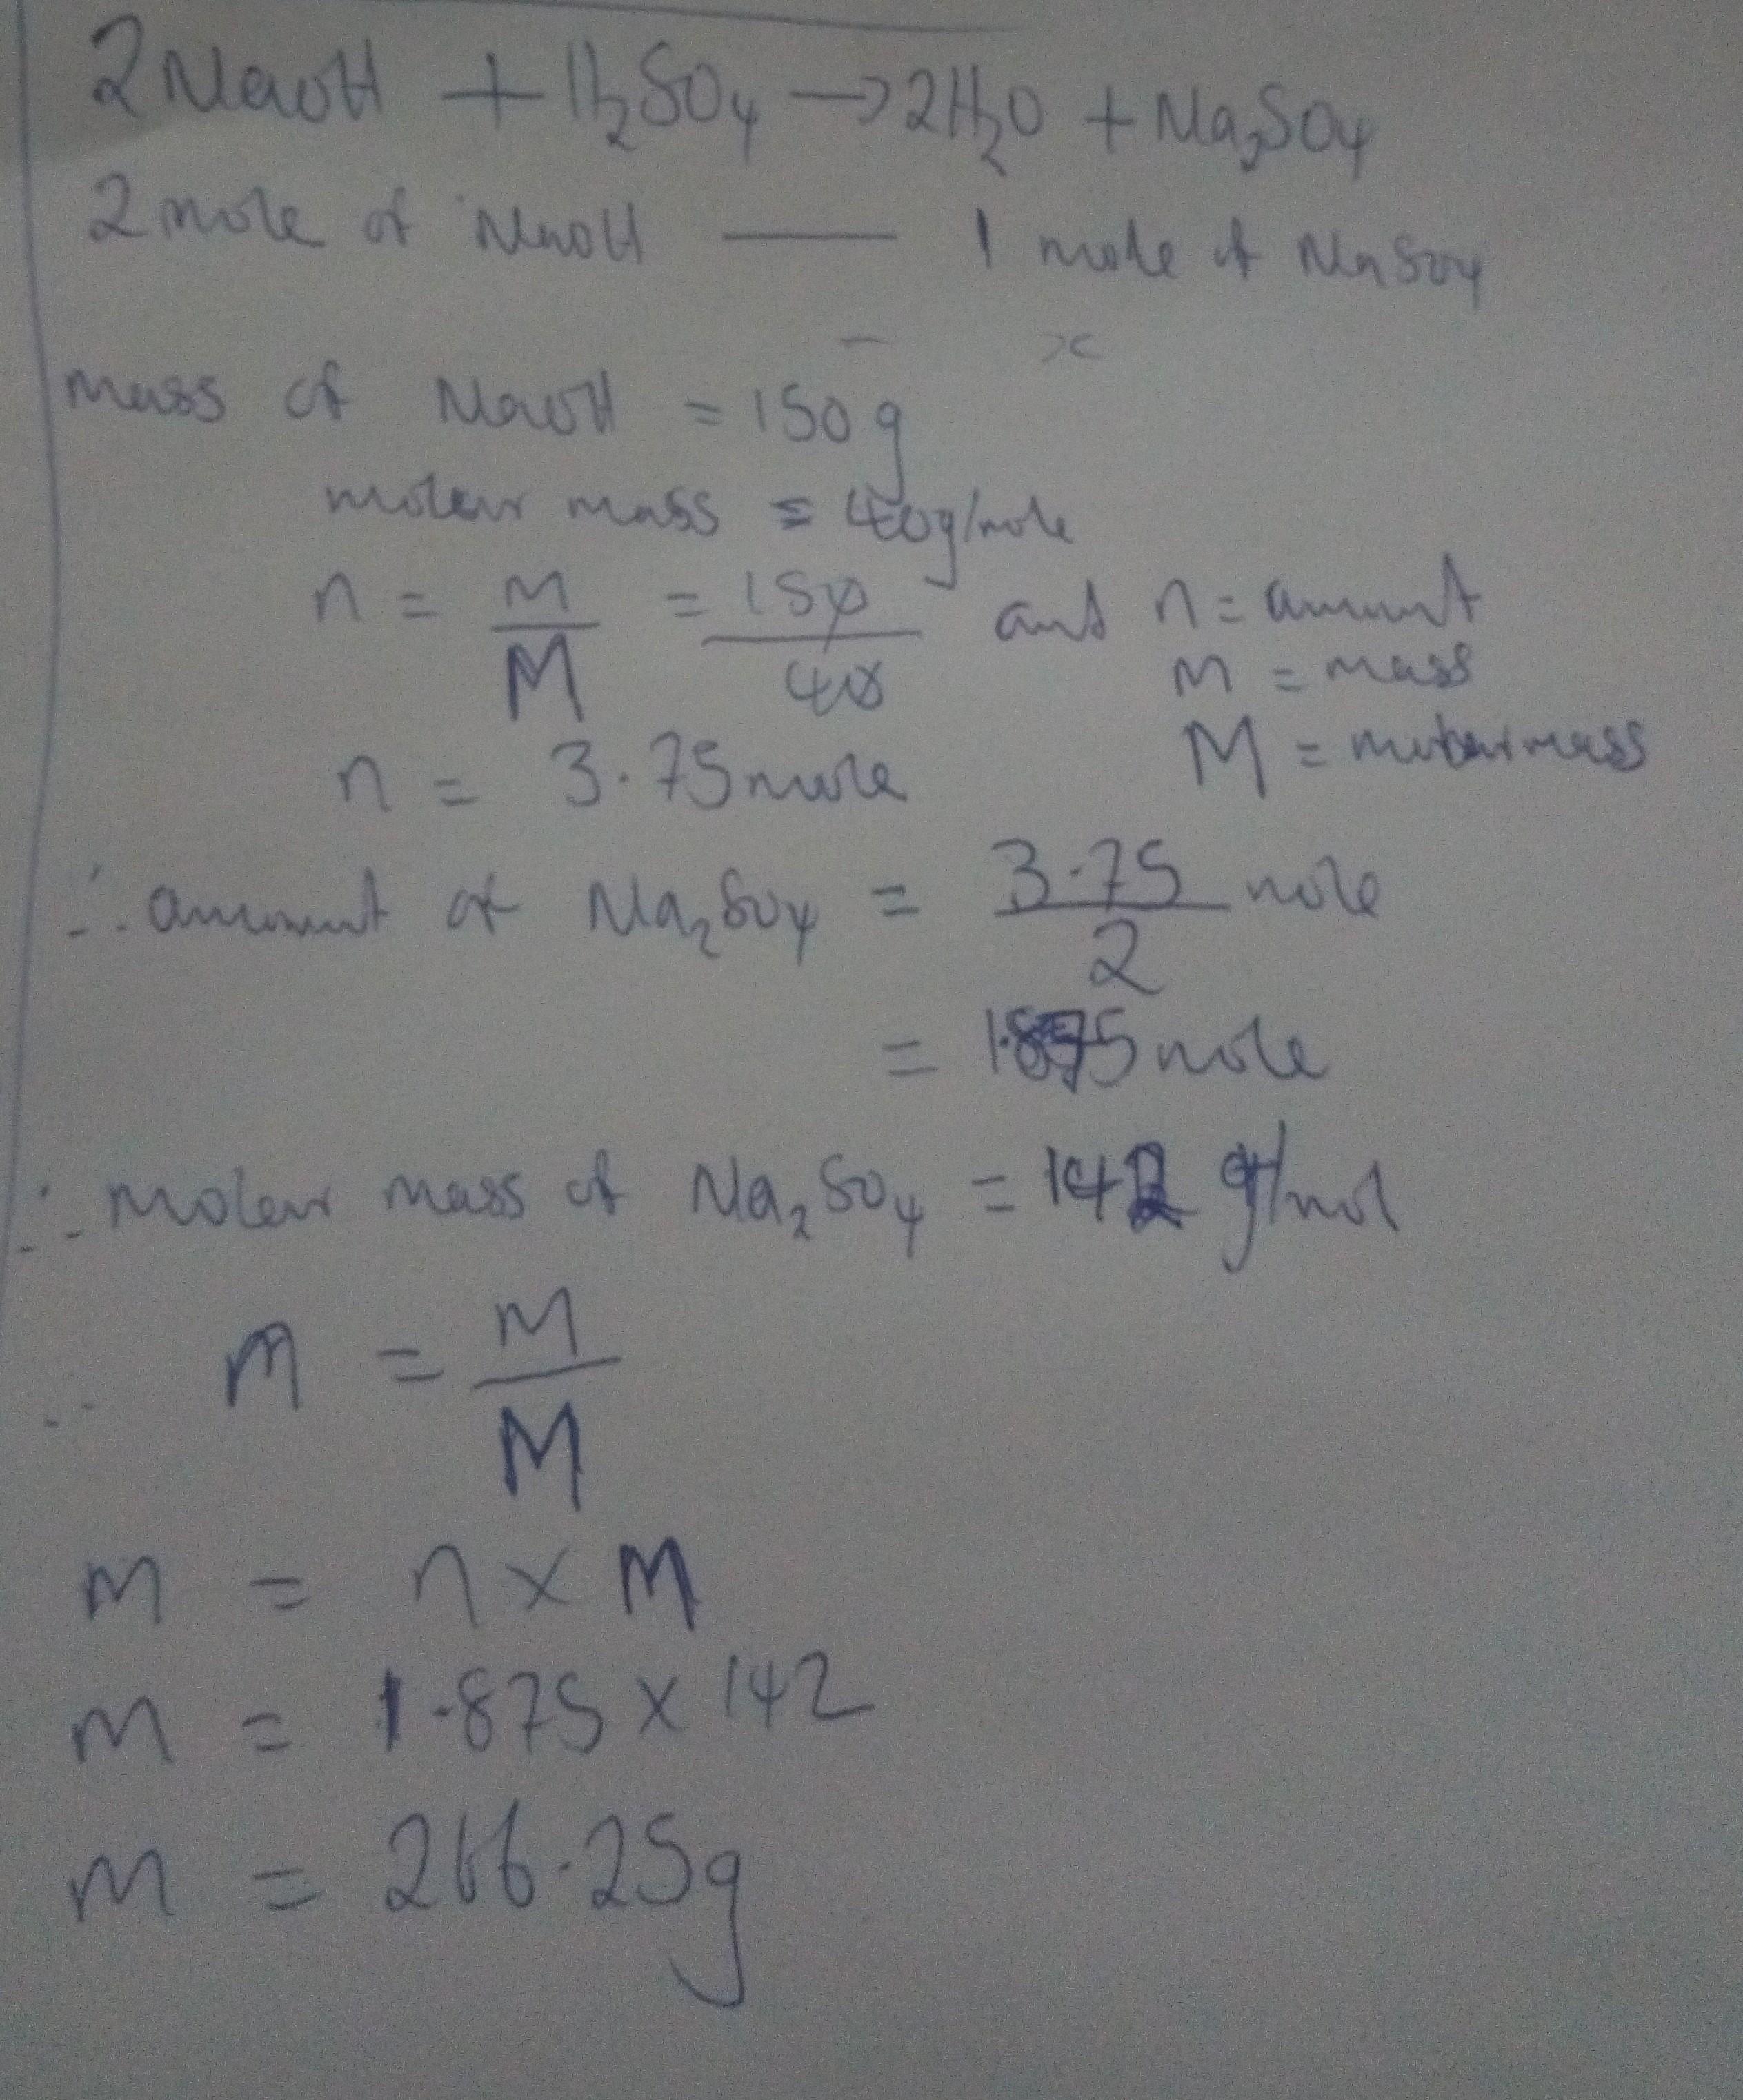 2NaOH + H₂SO₄ → 2H₂O + Na₂SO₄
2 mole of NaOH — 1 mole of NaSO4
– x
mass of NaOH = 150g
molar mass = 40g/mole
n = m/M = 150/40 and n = amount
m = mass
n = 3.75 mole M = molar mass
∴ amount of Na₂SO₄ = 3.75/2 mole
= 1.875 mole
∴ Molar mass of Na₂SO₄ = 142 g/mol
∴ n = m/M
m = n × M
m = 1.875 × 142
m = 266.25g